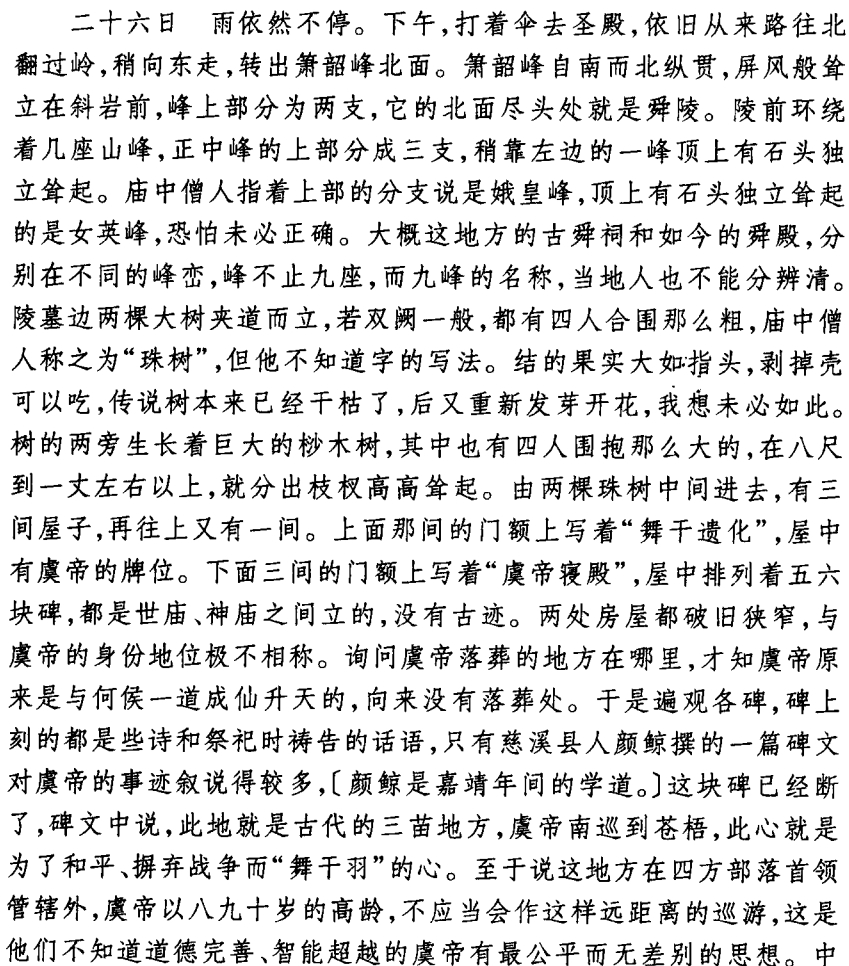 二十六日　雨依然不停。下午,打着伞去圣殿,依旧从来路往北
翻过岭,稍向东走,转出箫韶峰北面。箫韶峰自南而北纵贯,屏风般耸
立在斜岩前,峰上部分为两支,它的北面尽头处就是舜陵。陵前环绕
着几座山峰,正中峰的上部分成三支,稍靠左边的一峰顶上有石头独
立耸起。庙中僧人指着上部的分支说是娥皇峰,顶上有石头独立耸起
的是女英峰,恐怕未必正确。大概这地方的古舜祠和如今的舜殿,分
别在不同的峰峦,峰不止九座,而九峰的名称,当地人也不能分辨清。
陵墓边两棵大树夹道而立,若双阙一般,都有四人合围那么粗,庙中僧
人称之为“珠树”,但他不知道字的写法。结的果实大如指头,剥掉壳
可以吃,传说树本来已经干枯了,后又重新发芽开花,我想未必如此。
树的两旁生长着巨大的桫木树,其中也有四人围抱那么大的,在八尺
到一丈左右以上,就分出枝杈高高耸起。由两棵珠树中间进去,有三
间屋子,再往上又有一间。上面那间的门额上写着“舞干遗化”,屋中
有虞帝的牌位。下面三间的门额上写着“虞帝寝殿”,屋中排列着五六
块碑,都是世庙、神庙之间立的,没有古迹。两处房屋都破旧狭窄,与
虞帝的身份地位极不相称。询问虞帝落葬的地方在哪里,才知虞帝原
来是与何侯一道成仙升天的,向来没有落葬处。于是遍观各碑,碑上
刻的都是些诗和祭祀时祷告的话语,只有慈溪县人颜鲸撰的一篇碑文
对虞帝的事迹叙说得较多,〔颜鲸是嘉靖年间的学道。〕这块碑已经断
了,碑文中说,此地就是古代的三苗地方,虞帝南巡到苍梧,此心就是
为了和平、摒弃战争而“舞干羽”的心。至于说这地方在四方部落首领
管辖外,虞帝以八九十岁的高龄,不应当会作这样远距离的巡游,这是
他们不知道道德完善、智能超越的虞帝有最公平而无差别的思想。中